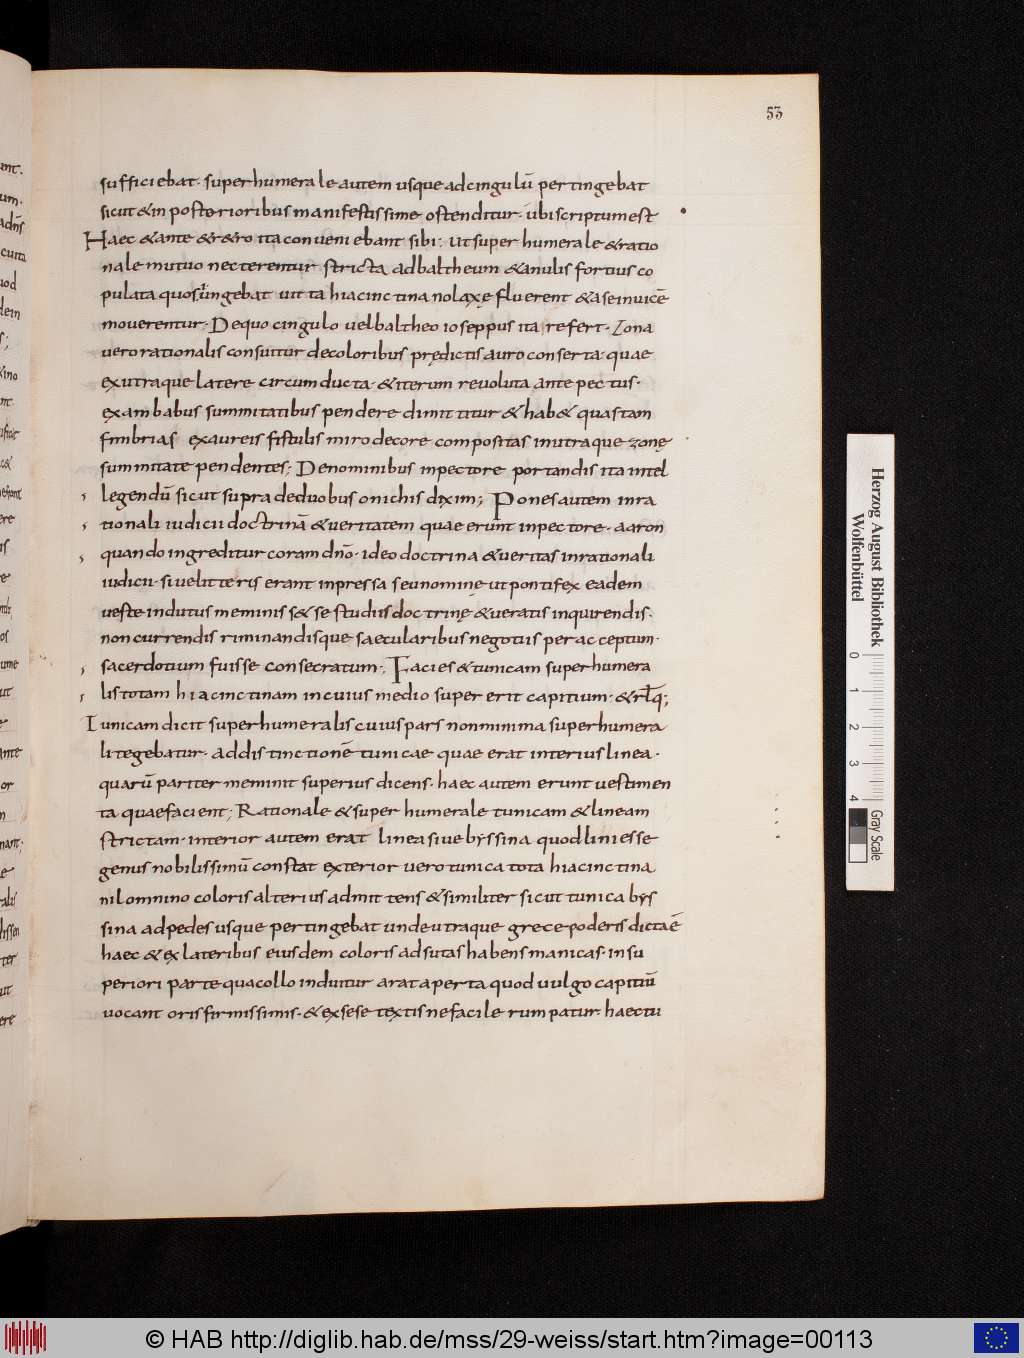 53
sufficiebat· superhumerale autem usque ad cingulū pertingebat
sicut & in posterioribus manifestissime ostenditur· ubi scriptum est
Haec & ante & r&ro ita conveniebant sibi; ut superhumerale & ratio
nale mutuo necterentur stricta ad baltheum & anulis fortius co
pulata quos iungebat uitta hiacinctina no laxę fluerent & a se inuicē
mouerentur· De quo cingulo uel baltheo ioseppus ita refert· Zona
uero rationalis consuitur de coloribus prędictis auro conserta· quae
ex utraque latere circumducta· & iterum reuoluta ante pectus·
ex ambabus summitatibus pendere dimittitur & hab& quas tam
fimbrias ex aureis fistulis miro decore compositas in utraque zonę
summitate pendentes; De nominibus in pectore portandis ita intel
legendū sicut supra de duobus onichis diximus; Pones autem in ra
tionali iudicii doctrinā & ueritatem quae erunt in pectore· aaron
quando ingreditur coram dn̄o· ideo doctrina & ueritas in rationali
iudicii· siue litteris erant inpressa seu nomine ut pontifex eadem
ueste indutus meminiss& se studiis doctrinę & ueratis inquirendis·
non currendis riminandisque saecularibus negotiis per acceptum·
sacerdotium fuisse consecratum·, Facies & tunicam superhumera
lis totam hiacinctinam in cuius medio super erit capitium· & rl̄q;
Tunicam dicit superhumeralis cuius pars non minima superhumera
li tegebatur· ad distinctionē tunicae quae erat interius linea·
quarū pariter meminit superius dicens· haec autem erunt uestimen
ta quae facient; Rationale & superhumerale tunicam & lineam
strictam· interior autem erat linea siue byssina quod lini esse
genus nobilissimū constat exterior uero tunica tota hiacinctina
nil omnino coloris alterius admittens & similiter sicut tunica bys
sina ad pedes usque pertingebat unde utraque grece poderis dicta ē
haec & ex lateribus eiusdem coloris adsutas habens manicas· in su
periori parte qua collo induitur arat aperta quod uulgo capitiū
uocant oris firmissimis· & ex sese textis ne facile rumpatur· haec tu
Herzog August Bibliothek
Wolfenbüttel
0 1 2 3 4
Gray Scale
© HAB http://diglib.hab.de/mss/29-weiss/start.htm?image=00113